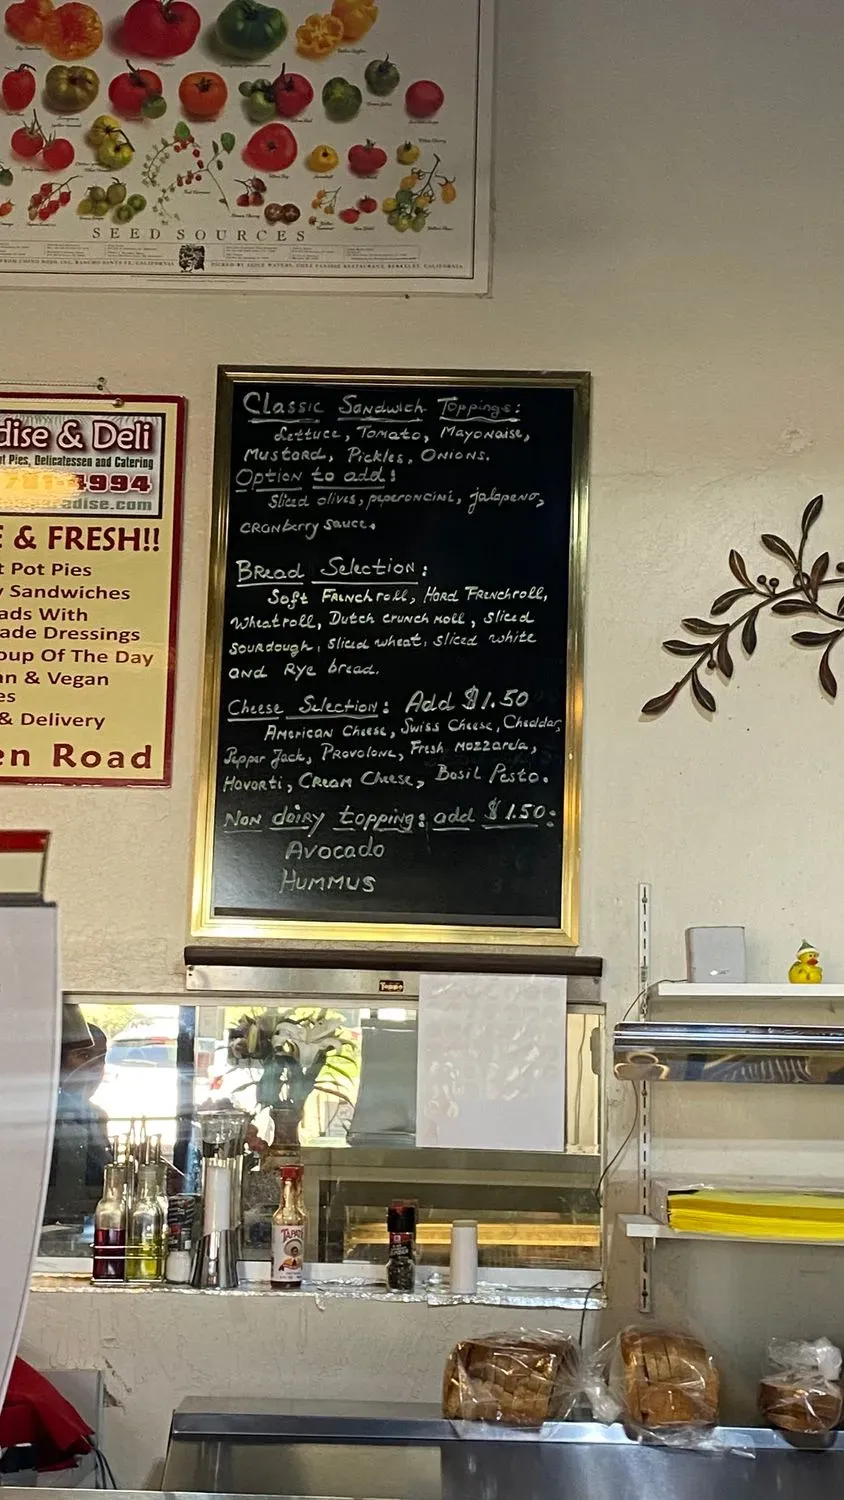 SEED SOURCES
FROM CHINO NOJO, INC, RANCHO SANTA FE, CALIFORNIA PICKED BY ALICE WATERS, CHEZ PANISSE RESTAURANT, BERKELEY, CALIFORNIA
dise & Deli
t Pies, Delicatessen and Catering
4994
radise.com
E & FRESH!!
t Pot Pies
y Sandwiches
ads With
ade Dressings
oup Of The Day
an & Vegan
es
& Delivery
en Road
Classic Sandwich Toppings:
Lettuce, Tomato, Mayonaise,
Mustard, Pickles, Onions.
Option to add:
Sliced olives, peperoncini, jalapeno,
cranberry sauce.
Bread Selection:
Soft Frenchroll, Hard Frenchroll,
Wheatroll, Dutch crunch roll, sliced
sourdough, sliced wheat, sliced white
and Rye bread.
Cheese Selection: Add $1.50
American Cheese, Swiss Cheese, Cheddar,
Pepper Jack, Provolone, Fresh mozzarela,
Havarti, Cream Cheese, Basil Pesto.
Non dairy topping: add $1.50:
Avocado
Hummus
TAPATIO